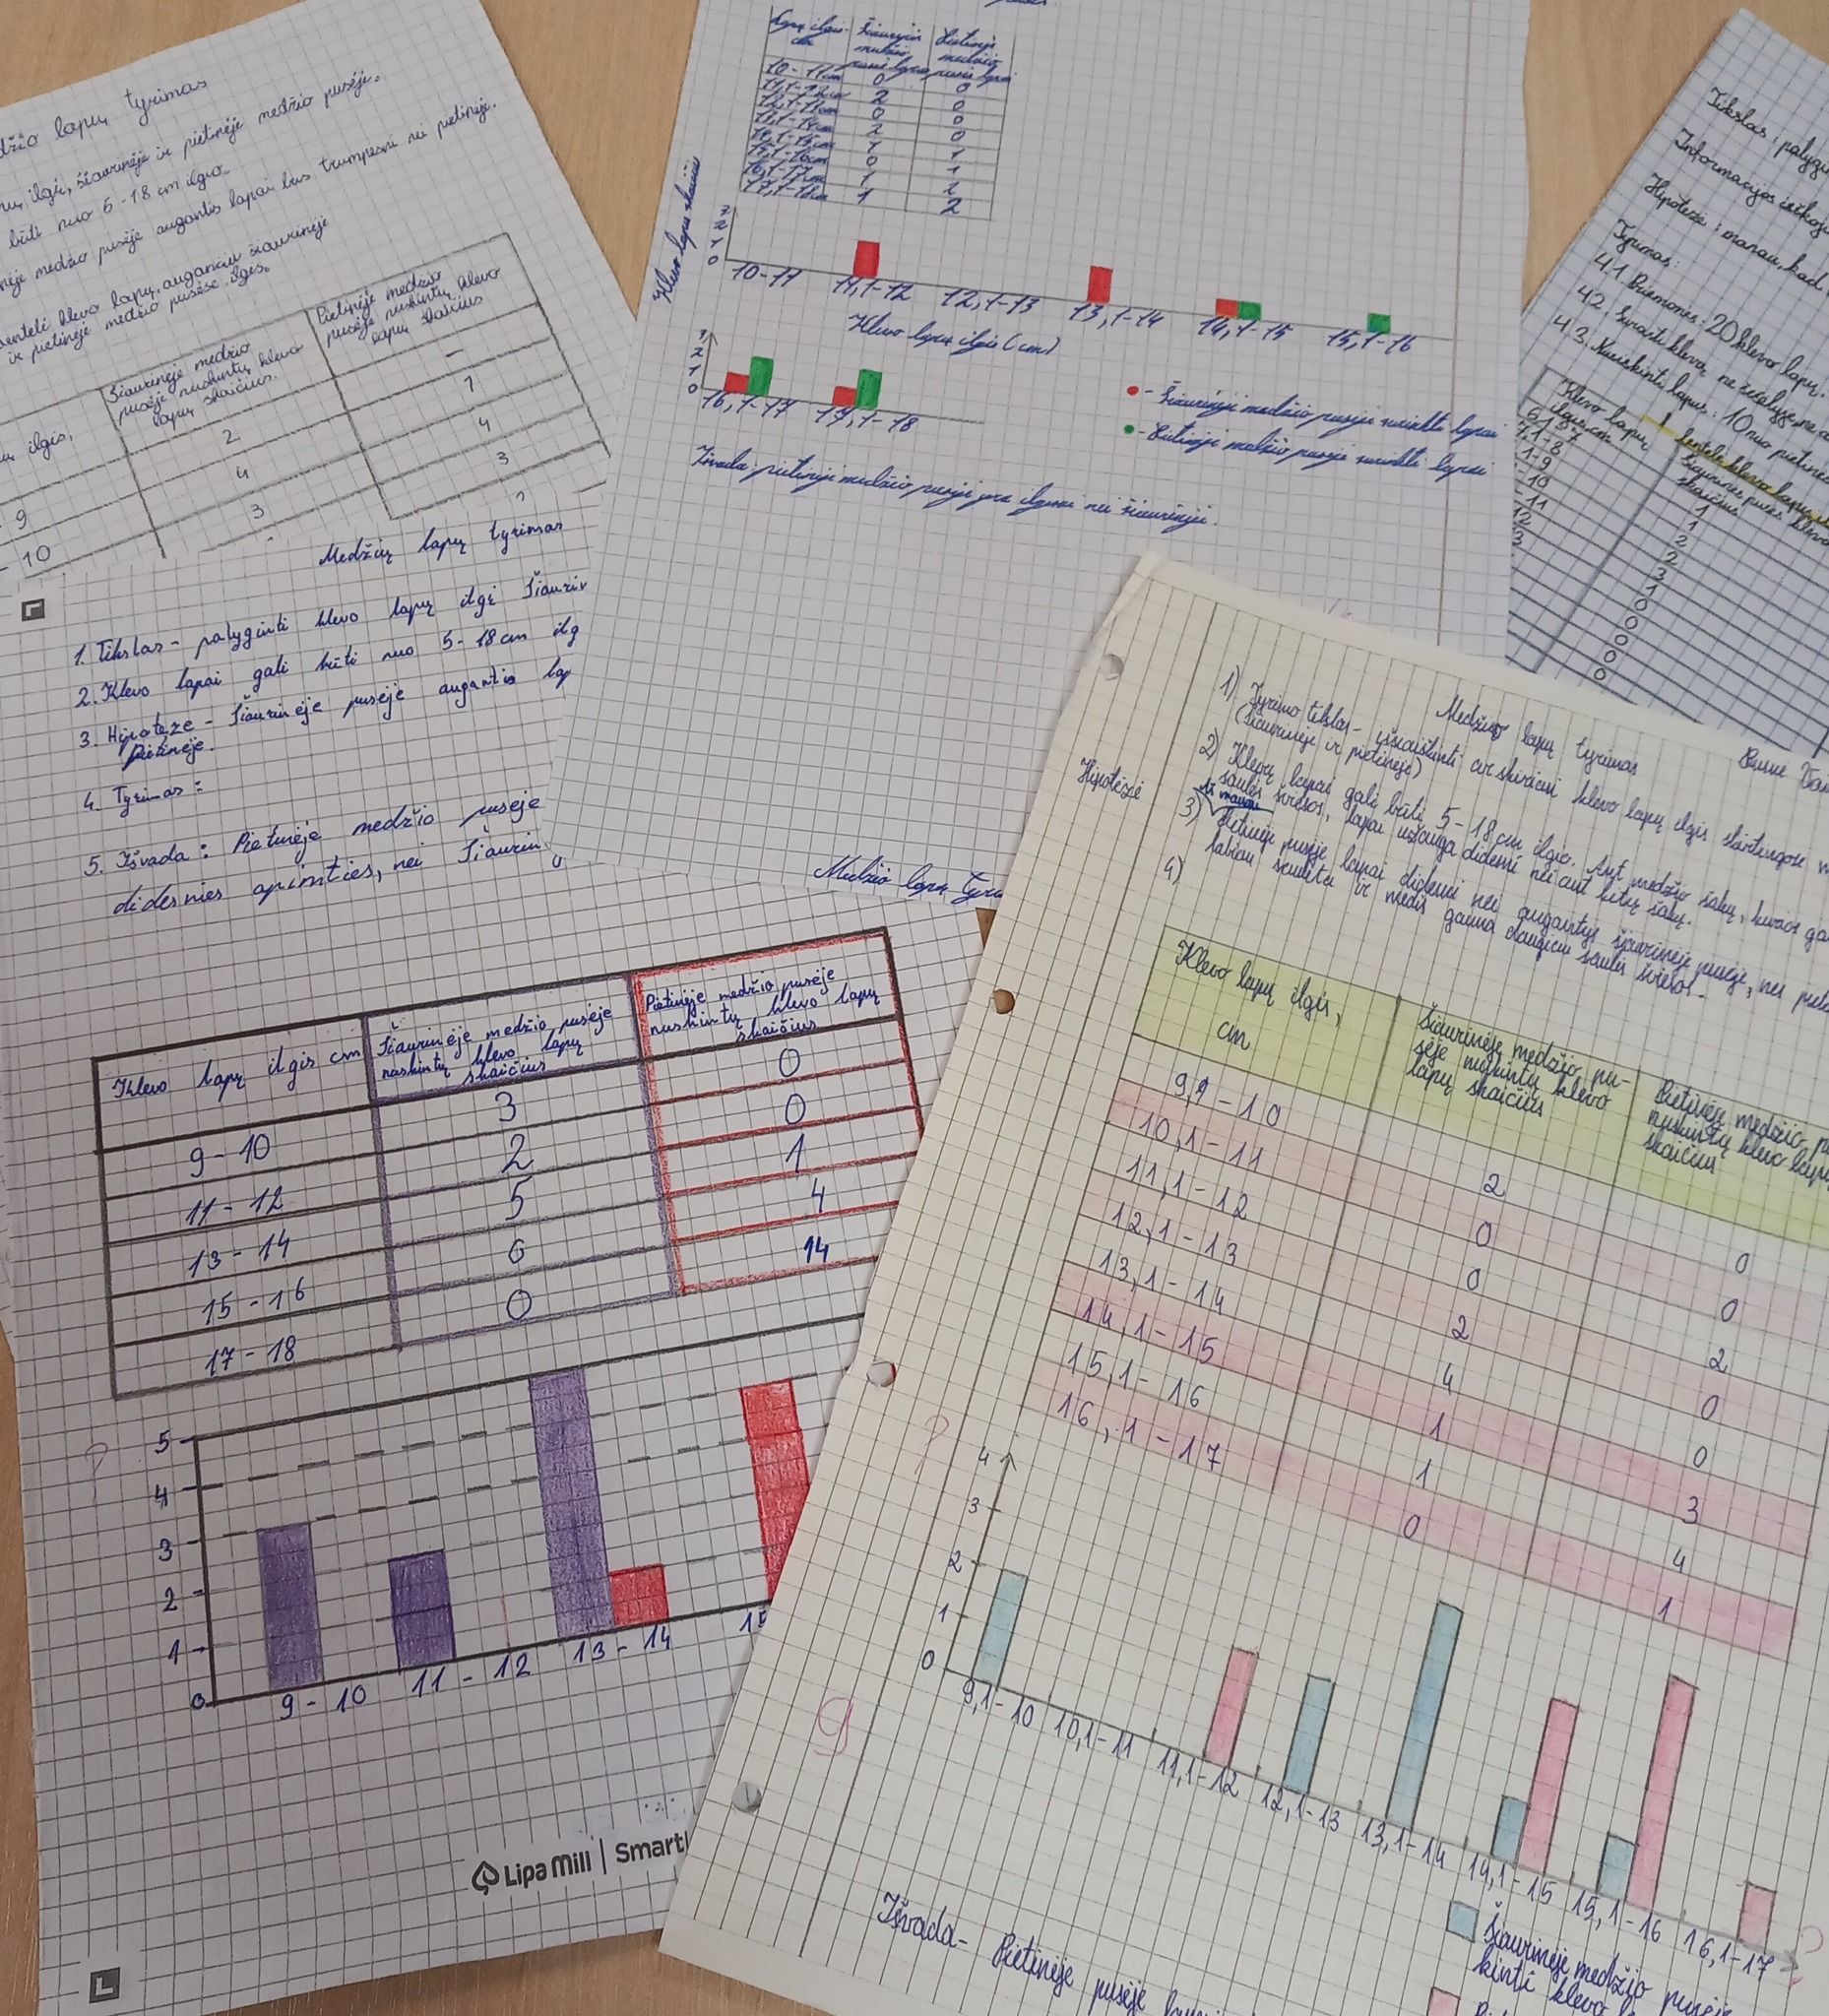 džio lapų tyrimas
ilgį, šiaurinėje ir pietinėje medžio pusėje.
būti nuo 6-18 cm ilgio.
medžio pusėje augantis lapai bus trumpesni nei pietinėje.
klevo lapų, augančių šiaurinėje
ir pietinėje medžio pusėse, ilgis.
ilgis,
Šiaurinėje medžio
pusėje nuskintų klevo
lapų skaičius.
Pietinėje medžio
pusėje nuskintų klevo
lapų skaičius
2
-
4
1
9
3
4
10
3
Lapų ilgis
cm
Šiaurinėje
medžio
pusėje lapai
Pietinėje
medžio
pusėje lapai
10-11cm 0 0
11,1-12cm 2 0
12,1-13cm 0 0
13,1-14cm 2 0
14,1-15cm 1 1
15,1-16cm 0 1
16,1-17cm 1 2
17,1-18cm 1 2
Klevo lapų skaičius
2
1
0
10-11 11,1-12 12,1-13 13,1-14 14,1-15 15,1-16
Klevo lapų ilgis (cm)
2
1
0
16,1-17 17,1-18
- Šiaurinėje medžio pusėje surinkti lapai
- Pietinėje medžio pusėje surinkti lapai
Išvada: pietinėje medžio pusėje yra ilgesni nei šiaurinėje.
Medžio lapų tyri
Tikslas: palygi
Informacijos ieškoji
Hipotezė: manau, kad
Tyrimas:
4.1. Priemonės: 20 klevo lapų.
4.2. Surasti klevą
4.3. Nuskinti lapus: 10 nuo pietinės
Klevo lapų
ilgis, cm
lentelė klevo lapų
Šiaurinės pusės klevo
skaičius
6,1-7 1
7,1-8 1
1-9 2
-10 2
-11 3
12 1
3 0
0
0
0
0
0
Medžių lapų tyrimas
1. Tikslas - palyginti klevo lapų ilgį šiaurin
2. Klevo lapai gali būti nuo 5-18 cm ilg
3. Hipotezė - Šiaurinėje pusėje augantis lap
Pietinėje.
4. Tyrimas:
5. Išvada: Pietinėje medžio pusėje
didesnies apimties, nei šiaurin
Klevo lapų ilgis cm
Šiaurinėje medžio pusėje
nuskintų klevo lapų
skaičius
Pietinėje medžio pusėje
nuskintų klevo lapų
skaičius
9-10 3 0
11-12 2 0
13-14 5 1
15-16 6 4
17-18 0 14
?
5
4
3
2
1
0
9-10 11-12 13-14 15
Lipa Mill | Smart
Medžio lapų tyrimas
1) Tyrimo tikslas- išsiaiškinti ar skiriasi klevo lapų ilgis skirtingose
(šiaurinėje ir pietinėje)
2) Klevų lapai gali būti 5-18 cm ilgio. Ant medžio šakų, kurios ga
saulės šviesos, lapai užauga didesni nei ant kitų šakų.
Hipotezė
Aš manau
3) Pietinėje pusėje lapai didesni nei augantys šiaurinėje pusėje, nes pieti
labiau saulėta ir medis gauna daugiau saulės šviesos.
4)
Klevo lapų ilgis,
cm
Šiaurinėje medžio pu-
sėje nuskintų klevo
lapų skaičius
Pietinėje medžio p
nuskintų klevo lapų
skaičius
9,1-10 2 0
10,1-11 0 0
11,1-12 0 2
12,1-13 2 0
13,1-14 4 0
14,1-15 1 3
15,1-16 1 4
16,1-17 0 1
?
4
3
2
1
0
9,1-10 10,1-11 11,1-12 12,1-13 13,1-14 14,1-15 15,1-16 16,1-17
9
Šiaurinėje medžio pusėje
kinti klevo
Išvada- Pietinėje pusėje